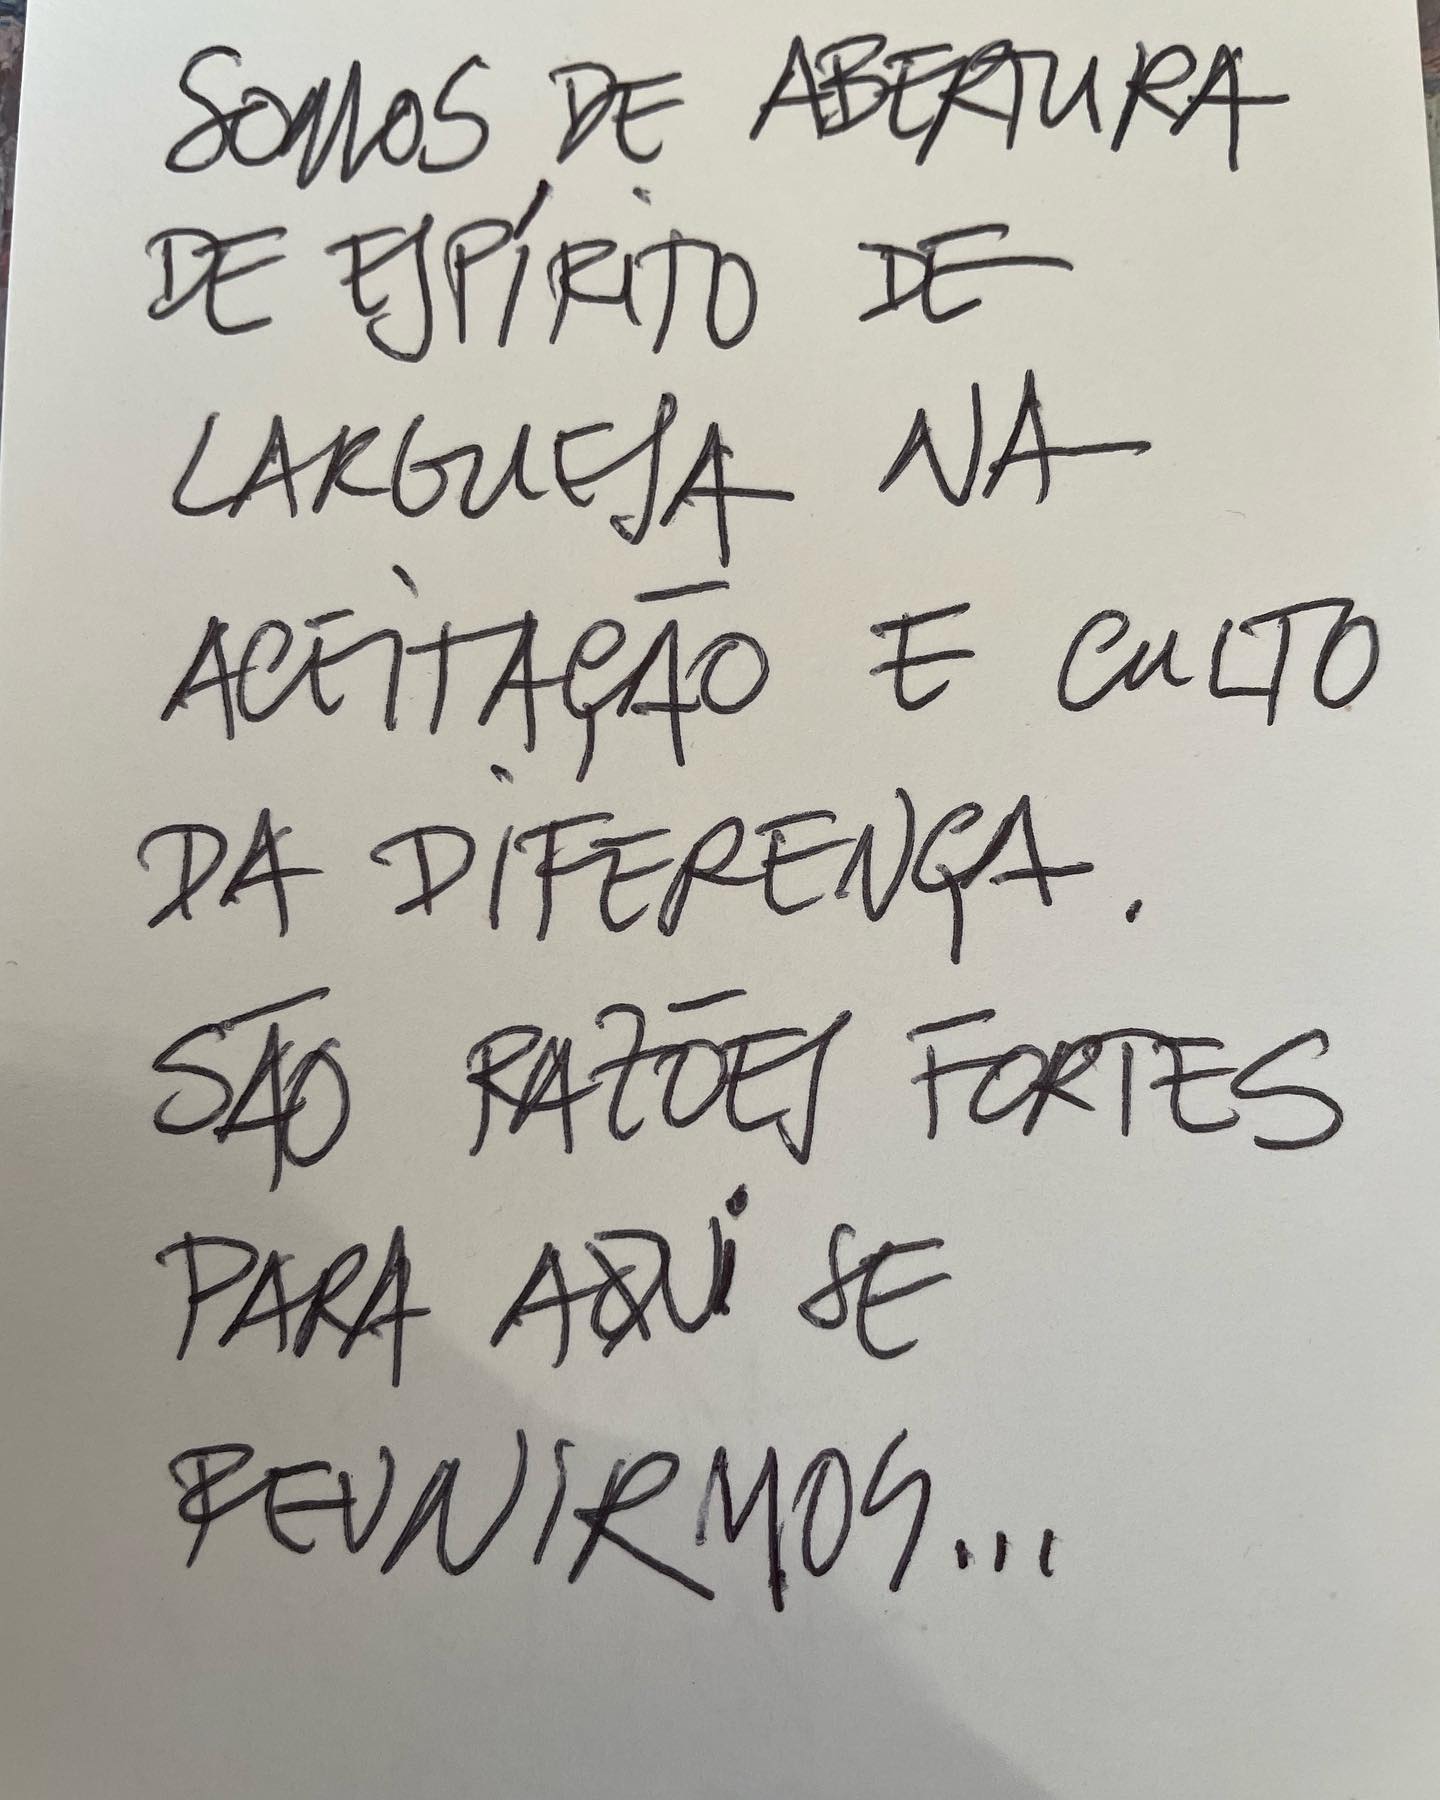 SOMOS DE ABERTURA
DE ESPÍRITO DE
LARGUESA NA
ACEITAÇÃO E CULTO
DA DIFERENÇA.
SÃO RAZÕES FORTES
PARA AQUI SE
REUNIRMOS...